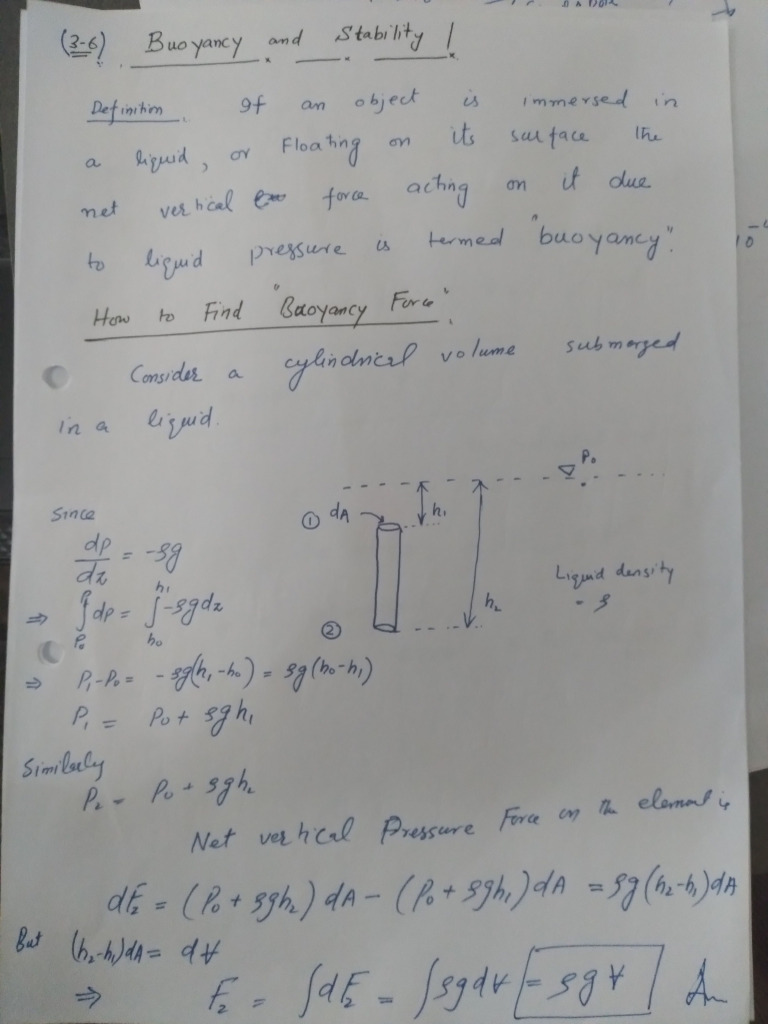 (3-6). Buoyancy and Stability
Definition. If an object is immersed in
a liquid, or Floating on its surface the
net vertical force acting on it due
to liquid pressure is termed "buoyancy".
How to Find "Buoyancy Force".
Consider a cylindrical volume submerged
in a liquid.
P₀
① dA h₁
Since
dp/dz = -ρg
Liquid density
= ρ
⇒ ∫dp = ∫-ρgdz
P₀ h₀ h₁
② h₂
⇒ P₁-P₀ = -ρg(h₁-h₀) = ρg(h₀-h₁)
P₁ = P₀ + ρgh₁
Similarly
P₂ = P₀ + ρgh₂
Net vertical Pressure Force on the element is
dF₂ = (P₀ + ρgh₂) dA - (P₀ + ρgh₁) dA = ρg(h₂-h₁)dA
But (h₂-h₁)dA = dV
⇒ F₂ = ∫dF₂ = ∫ρgdV = ρgV